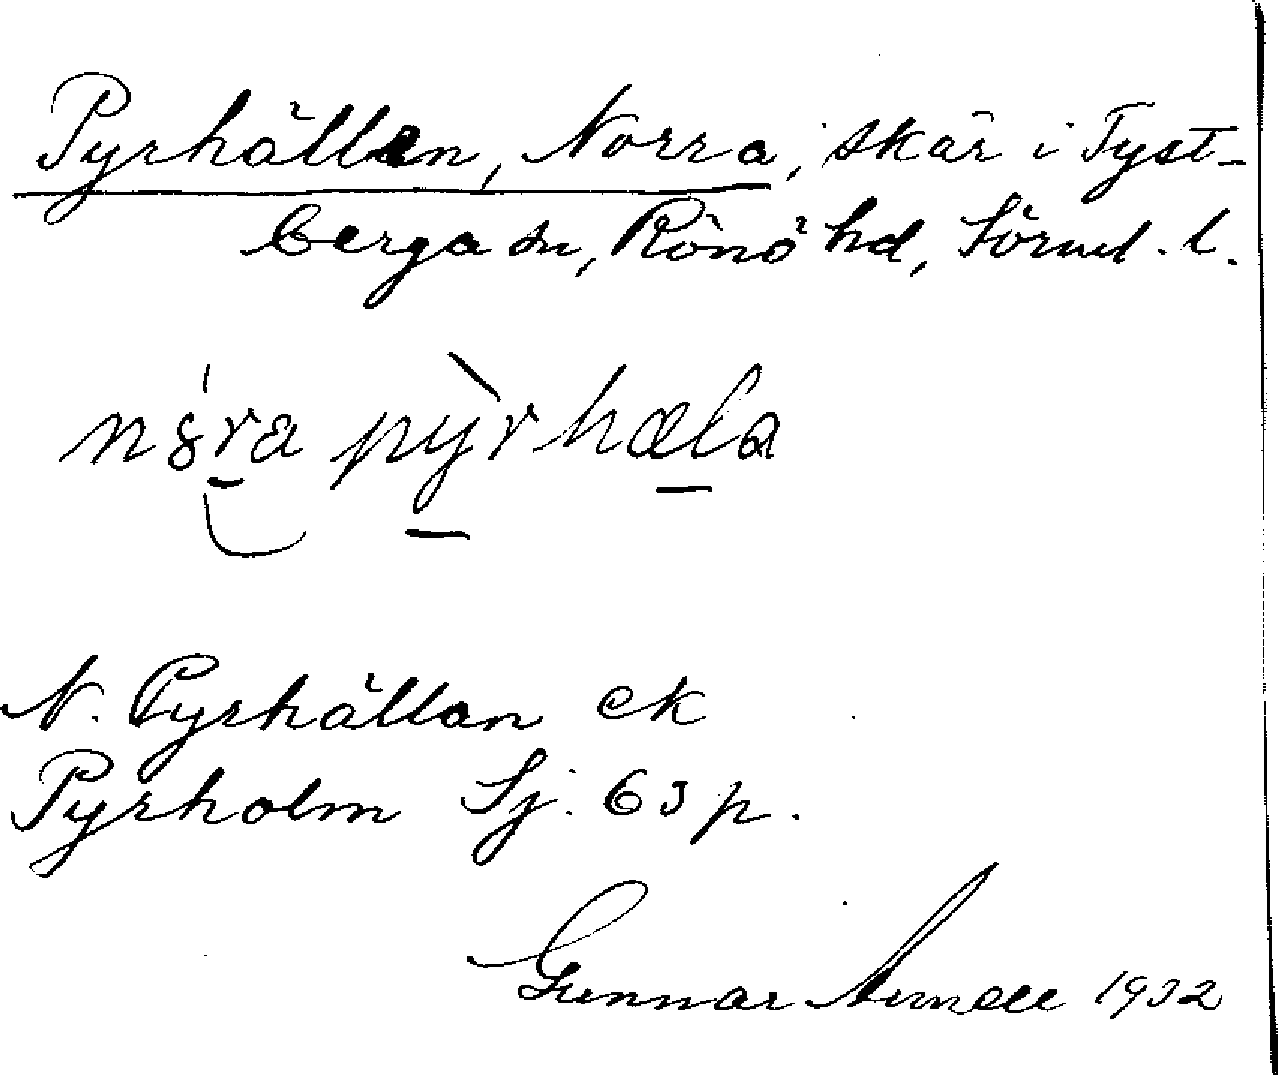 Pyrhällen, Norra, skär i Tyst-
berga sn, Rönö hd, Sörml. l.
nɷ́ra pỳrhæla
N. Pyrhällan ek
Pyrholm Sj. 63 p.
Gunnar 1932